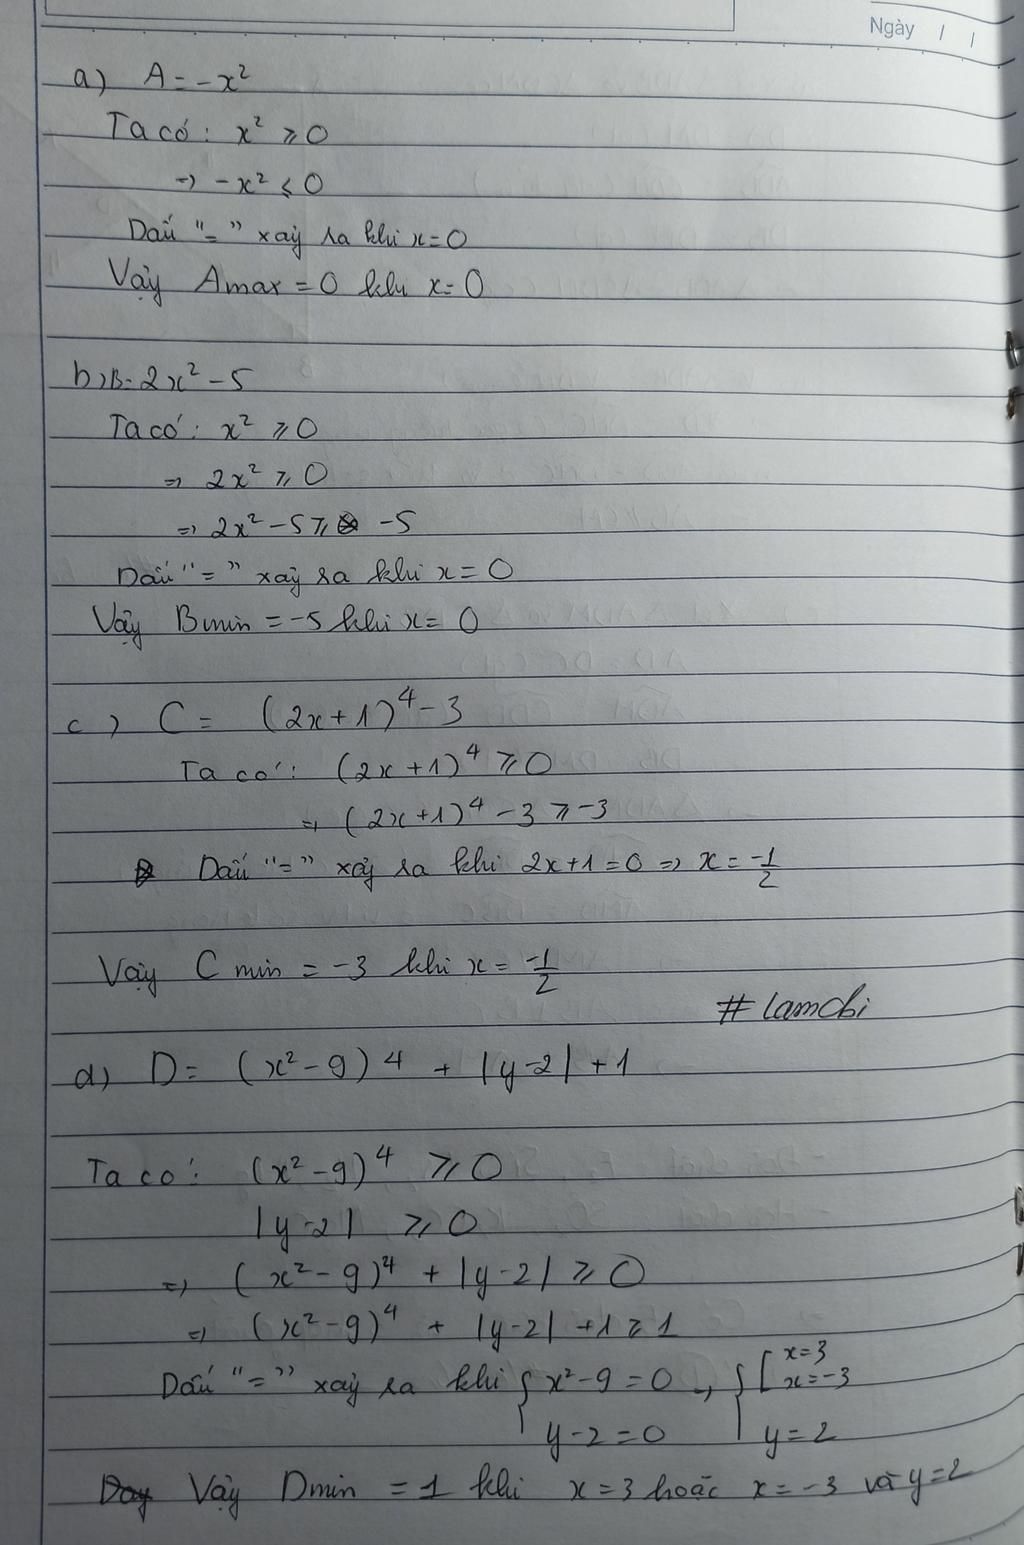 Ngày / /
a) A = -x²
Ta có: x² ⩾ 0
→ -x² ⩽ 0
Dấu "=" xảy ra khi x=0
Vậy Amax = 0 khi x=0
b) B= 2x² - 5
Ta có: x² ⩾ 0
⇒ 2x² ⩾ 0
⇒ 2x² - 5 ⩾ -5
Dấu "=" xảy ra khi x = 0
Vậy Bmin = -5 khi x = 0
c) C = (2x+1)⁴ - 3
Ta có: (2x+1)⁴ ⩾ 0
⇒ (2x+1)⁴ - 3 ⩾ -3
Dấu "=" xảy ra khi 2x+1=0 ⇒ x = -1/2
Vậy C min = -3 khi x = -1/2
# lamchi
d) D = (x² - 9)⁴ + |y-2| + 1
Ta có: (x² - 9)⁴ ⩾ 0
|y-2| ⩾ 0
⇒ (x² - 9)⁴ + |y-2| ⩾ 0
⇒ (x² - 9)⁴ + |y-2| + 1 ⩾ 1
Dấu "=" xảy ra khi { x² - 9 = 0 → { [ x=3 x=-3
y-2=0 y=2
Vậy Dmin = 1 khi x=3 hoặc x=-3 và y=2